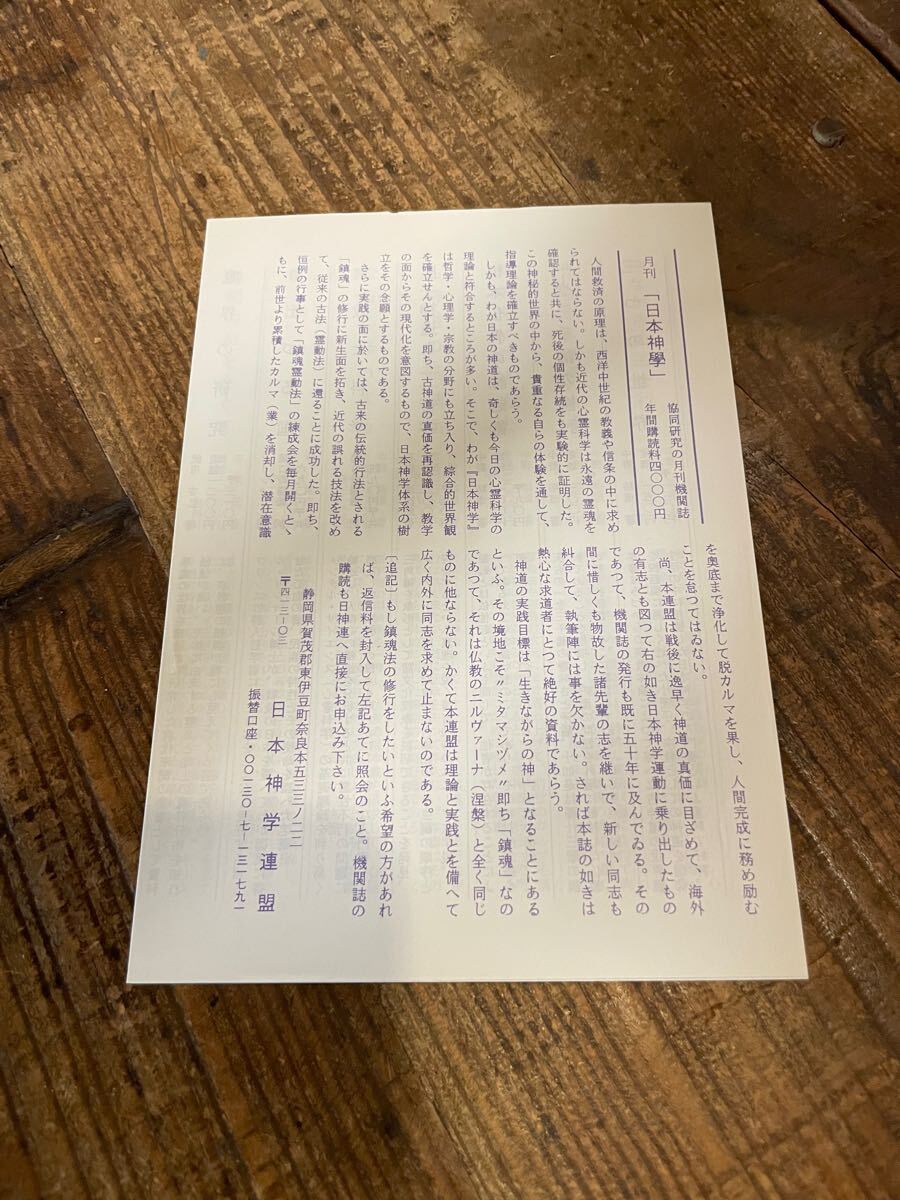 月刊 「日本神學」
協同研究の月刊機関誌
年間購読料四〇〇〇円
人間救済の原理は、西洋中世紀の教義や信条の中に求め
られてはならない。しかも近代の心霊科学は永遠の霊魂を
確認すると共に、死後の個性存続をも実験的に証明した。
この神秘的世界の中から、貴重なる自らの体験を通して、
指導理論を確立すべきものであらう。
しかも、わが日本の神道は、奇しくも今日の心霊科学の
理論と符合するところが多い。そこで、わが『日本神学』
は哲学・心理学・宗教の分野にも立ち入り、綜合的世界観
を確立せんとする。即ち、古神道の真価を再認識し、教学
の面からその現代化を意図するもので、日本神学体系の樹
立をその念願とするものである。
さらに実践の面に於いては、古来の伝統的行法とされる
「鎮魂」の修行に新生面を拓き、近代の誤れる技法を改め
て、従来の古法（霊動法）に還ることに成功した。即ち、
恒例の行事として「鎮魂霊動法」の練成会を毎月開くとゝ
もに、前世より累積したカルマ（業）を消却し、潜在意識
を奥底まで浄化して脱カルマを果し、人間完成に務め励む
ことを怠つてはゐない。
尚、本連盟は戦後に逸早く神道の真価に目ざめて、海外
の有志とも図つて右の如き日本神学運動に乗り出したもの
であつて、機関誌の発行も既に五十年に及んでゐる。その
間に惜しくも物故した諸先輩の志を継いで、新しい同志も
糾合して、執筆陣には事を欠かない。されば本誌の如きは
熱心な求道者にとつて絶好の資料であらう。
神道の実践目標は「生きながらの神」となることにある
といふ。その境地こそ〃ミタマシヅメ〃即ち「鎮魂」なの
であつて、それは仏教のニルヴァーナ（涅槃）と全く同じ
ものに他ならない。かくて本連盟は理論と実践とを備へて
広く内外に同志を求めて止まないのである。
〔追記〕もし鎮魂法の修行をしたいといふ希望の方があれ
ば、返信料を封入して左記あてに照会のこと。機関誌の
購読も日神連へ直接にお申込み下さい。
静岡県賀茂郡東伊豆町奈良本五三三ノ二二
〒四一三-〇三
日本神学連盟
振替口座・〇〇一三〇-七-一三一七九一